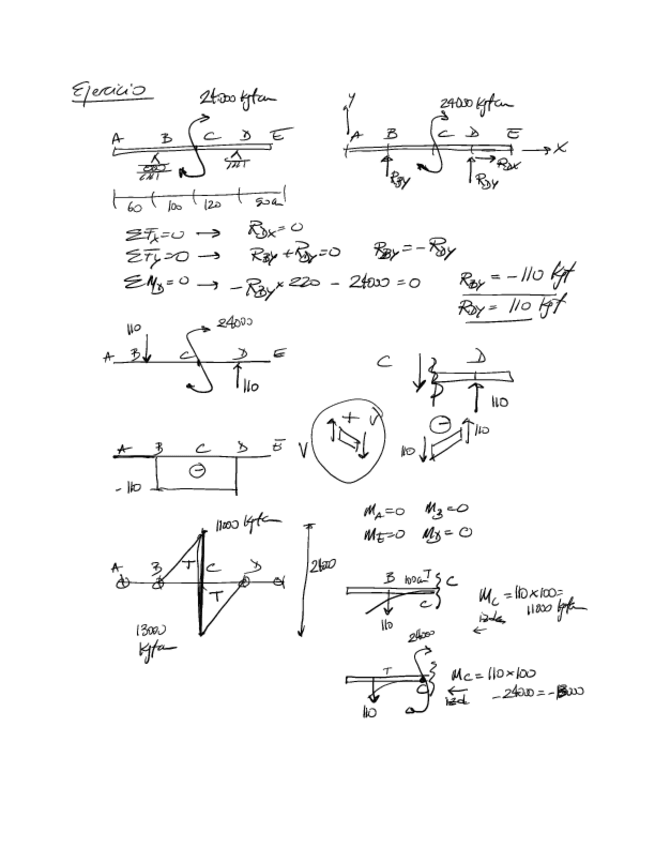 Ejercicio
24000 kgfcm
A B C D E
60 100 120 90cm
24000 kgfcm
Y
A B C D E
X
RBY RDY RDX
ΣFx=0 → RDX=0
ΣFy=0 → RBY + RDY=0 RBY = - RDY
ΣMD=0 → - RBY × 220 - 24000 = 0
RBY = -110 kgf
RDY = 110 kgf
110 24000
A B C D E
110
C D
110
A B C D E V
⊖
- 110
+ V
⊖
110 110
MA=0 MB=0
ME=0 MD=0
11000 kgfcm
A B T C D
T
13000
kgfcm
B 100cm T C
C
110
MC = 110×100=
11000 kgfcm
izda
←
24000
T
110
MC = 110×100
← izd
- 24000 = -13000